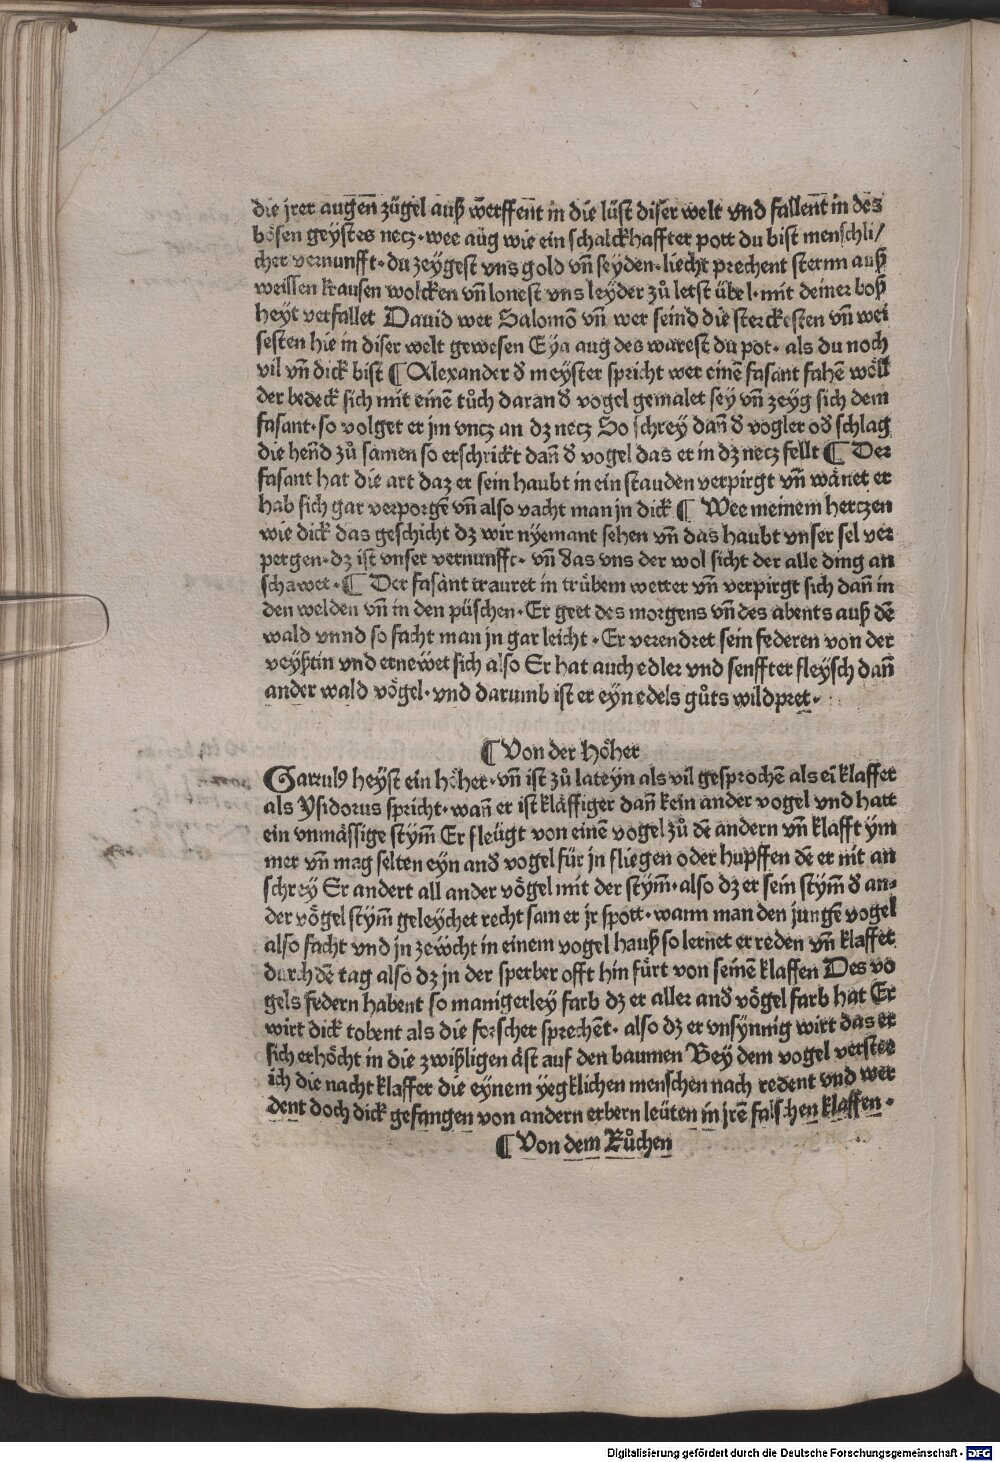 die jrer augen zügel auß werffent in die lüst diser welt vnd fallent in des
bösen geystes necz · wee aüg wie ein schalckhaffter pott du bist menschli/
cher vernunfft · du zeygest vns gold vñ seyden · liecht prechent sternn auß
weissen krausen wolcken vñ lonest vns leyder zů letst übel · mit deiner boß
heyt verfallet Dauid wer Salomõ vñ wer seind die sterckesten vñ wei
sesten hie in diser welt gewesen Eya aug des warest du pot · als du noch
vil vñ dick bist ¶ Alexander ď meyster spricht wer einẽ fasant fahẽ wöll
der bedeck sich mit einẽ tůch daran ď vogel gemalet sey vñ zeyg sich dem
fasant · so volget er jm vncz an dz necz So schrey dañ ď vogler oď schlag
die hend zů samen so erschrickt dañ ď vogel das er in dz necz fellt ¶ Der
fasant hat die art daz er sein haubt in ein stauden verpirgt vñ wänet er
hab sich gar verporgẽ vñ also vacht man jn dick ¶ Wee meinem herczen
wie dick das geschicht dz wir nyemant sehen vñ das haubt vnser sel ver
pergen · dz ist vnser vernunfft · vñ das vns der wol sicht der alle ding an
schawet · ¶ Der fasant trauret in trübem wetter vñ verpirgt sich dañ in
den welden vñ in den püschen · Er geet des morgens vñ des abents auß dẽ
wald vnnd so facht man jn gar leicht · Er verendret sein federen von der
veyßtin vnd ernewet sich also Er hat auch edler vnd senffter fleysch dañ
ander wald vögel · vnd darumb ist er eyn edels gůts wildpret ·
¶ Von der Höher
Garrulꝰ heyst ein höher · vñ ist zů lateyn als vil gesprochẽ als eĩ klaffer
als Ysidorus spricht · wañ er ist kläffiger dañ kein ander vogel vnd hatt
ein vnmässige stym̃ Er fleügt von einẽ vogel zů dẽ andern vñ klafft ym
mer vñ mag selten eyn anď vogel für jn fliegen oder hupffen dẽ er nit an
schrey Er andert all ander vögel mit der stym̃ · also dz er sein stym̃ ď an-
der vögel stym̃ geleychet recht sam er jr spott · wann man den jungẽ vogel
also facht vnd jn zewcht in einem vogel hauß so lernet er reden vñ klaffet
durch dẽ tag also dz jn der sperber offt hin fürt von seinẽ klaffen Des vo
gels federn habent so manigerley farb dz er aller anď vögel farb hat Er
wirt dick tobent als die forscher sprechẽt · also dz er vnsynnig wirt das er
sich erhöcht in die zwißligen äst auf den baumen Bey dem vogel verstee
ich die nacht klaffer die eynem yegklichen menschen nach redent vnd wer
dent doch dick gefangen von andern erbern leüten in jrẽ falschen klaffen ·
¶ Von dem Růchen
Digitalisierung gefördert durch die Deutsche Forschungsgemeinschaft - DFG